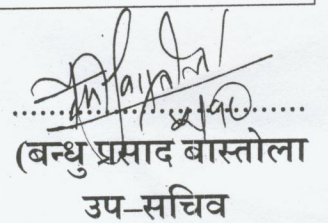 (बन्धु प्रसाद बास्तोला
उप–सचिव